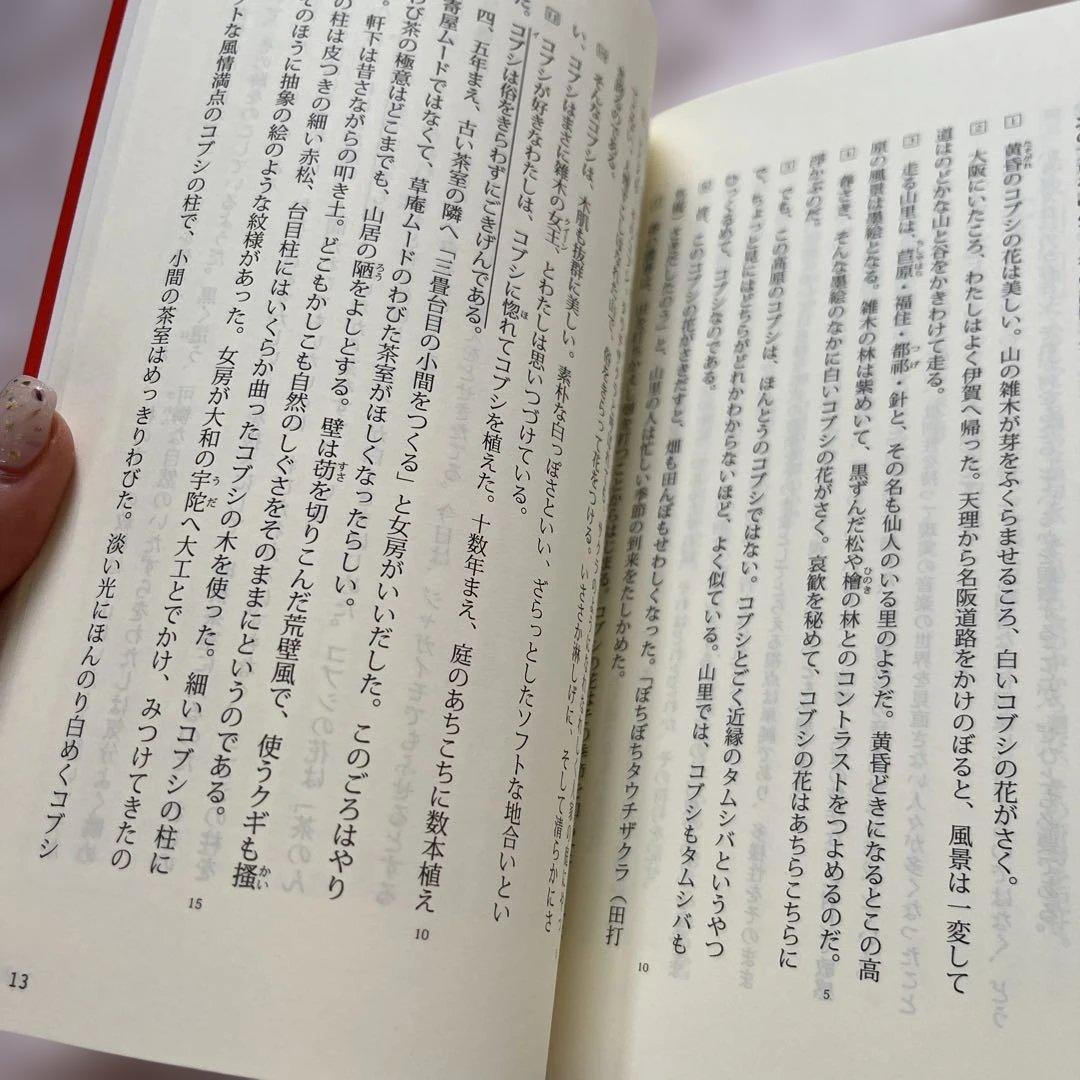 1 黄昏のコブシの花は美しい。山の雑木が芽をふくらませるころ、白いコブシの花がさく。
2 大阪にいたころ、わたしはよく伊賀へ帰った。天理から名阪道路をかけのぼると、風景は一変して
道はのどかな山と谷をかきわけて走る。
3 走る山里は、苣原・福住・都祁・針と、その名も仙人のいる里のようだ。黄昏どきになるとこの高
原の風景は墨絵となる。雑木の林は紫めいて、黒ずんだ松や檜の林とのコントラストをつよめるのだ。
4 春さき、そんな墨絵のなかに白いコブシの花がさく。哀歓を秘めて、コブシの花はあちらこちらに
浮かぶのだ。
5 でも、この高原のコブシは、ほんとうのコブシではない。コブシとごく近縁のタムシバというやつ
で、ちょっと見にはどちらがどれかわからないほど、よく似ている。山里では、コブシもタムシバも
ひっくるめて、コブシなのである。
このコブシの花がさきだすと、畑も田んぼもせわしくなった。「ぼちぼちタウチザクラ（田打
と、山里の人は忙しい季節の到来をたしかめた。
5
10
そんなコブシは、木肌も抜群に美しい。素朴な白っぽさといい、ざらっとしたソフトな地合いとい
い、コブシはまさに雑木の女王、とわたしは思いつづけている。
11 コブシが好きなわたしは、コブシに惚れてコブシを植えた。十数年まえ、庭のあちこちに数本植え
た。コブシは俗をきらわずにごきげんである。
四、五年まえ、古い茶室の隣へ「三畳台目の小間をつくる」と女房がいいだした。このごろはやり
寄屋ムードではなくて、草庵ムードのわびた茶室がほしくなったらしい。
わび茶の極意はどこまでも、山居の陋をよしとする。壁は苆を切りこんだ荒壁風で、使うクギも掻
軒下は昔さながらの叩き土。どこもかしこも自然のしぐさをそのままにというのである。
の柱は皮つきの細い赤松、台目柱にはいくらか曲ったコブシの木を使った。細いコブシの柱に
そのほうに抽象の絵のような紋様があった。女房が大和の宇陀へ大工とでかけ、みつけてきたの
ットな風情満点のコブシの柱で、小間の茶室はめっきりわびた。淡い光にほんのり白めくコブシ
10
15
13